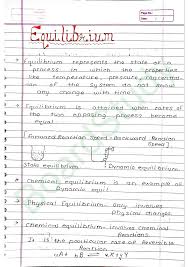 Page No.
Date
Equilibrium
• Equilibrium represents the state of a
process in which properties
like temperature, pressure, concentration
of the system do not show
any change with time
• Equilibrium is attained when rates of
the two opposing process become
equal
Forward Reaction Speed = Backward Reaction
Speed
State equilibrium Dynamic equilibrium
• Chemical equilibrium is an example of
Dynamic equil
• Physical Equilibrium- Any involves
Physical changes
• Chemical equilibrium- involves Chemical
Reactions.
It is the particular case of Reversible
Reaction